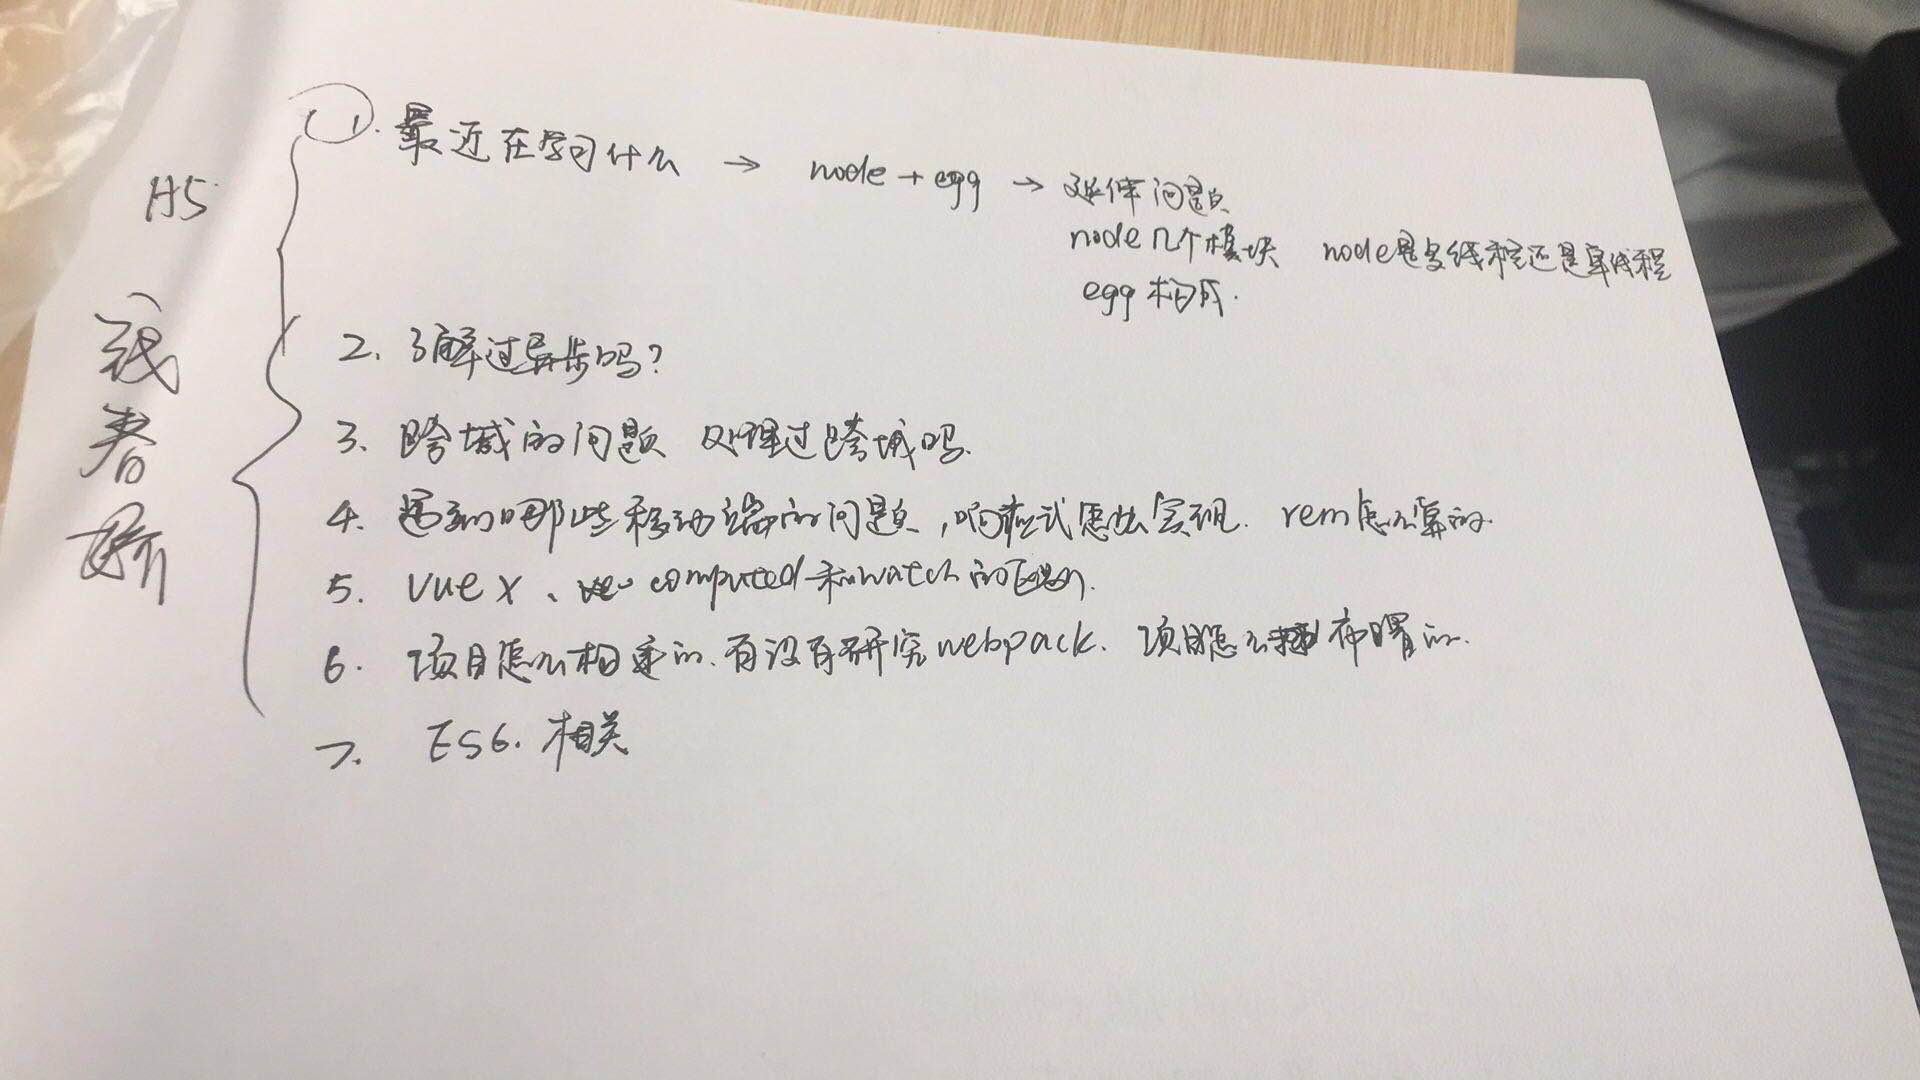 H5
1. 最近在学习什么 → node + egg → 延伸问题
node几个模块 node是多线程还是单线程
egg 构成.
2. 了解过异步吗?
3. 跨域的问题 处理过跨域吗.
4. 遇到哪些移动端的问题, 响应式怎么实现. rem怎么算的.
5. vuex、computed和watch的区别.
6. 项目怎么构建的. 有没有研究webpack. 项目怎么布署的.
7. ES6. 相关
春娇